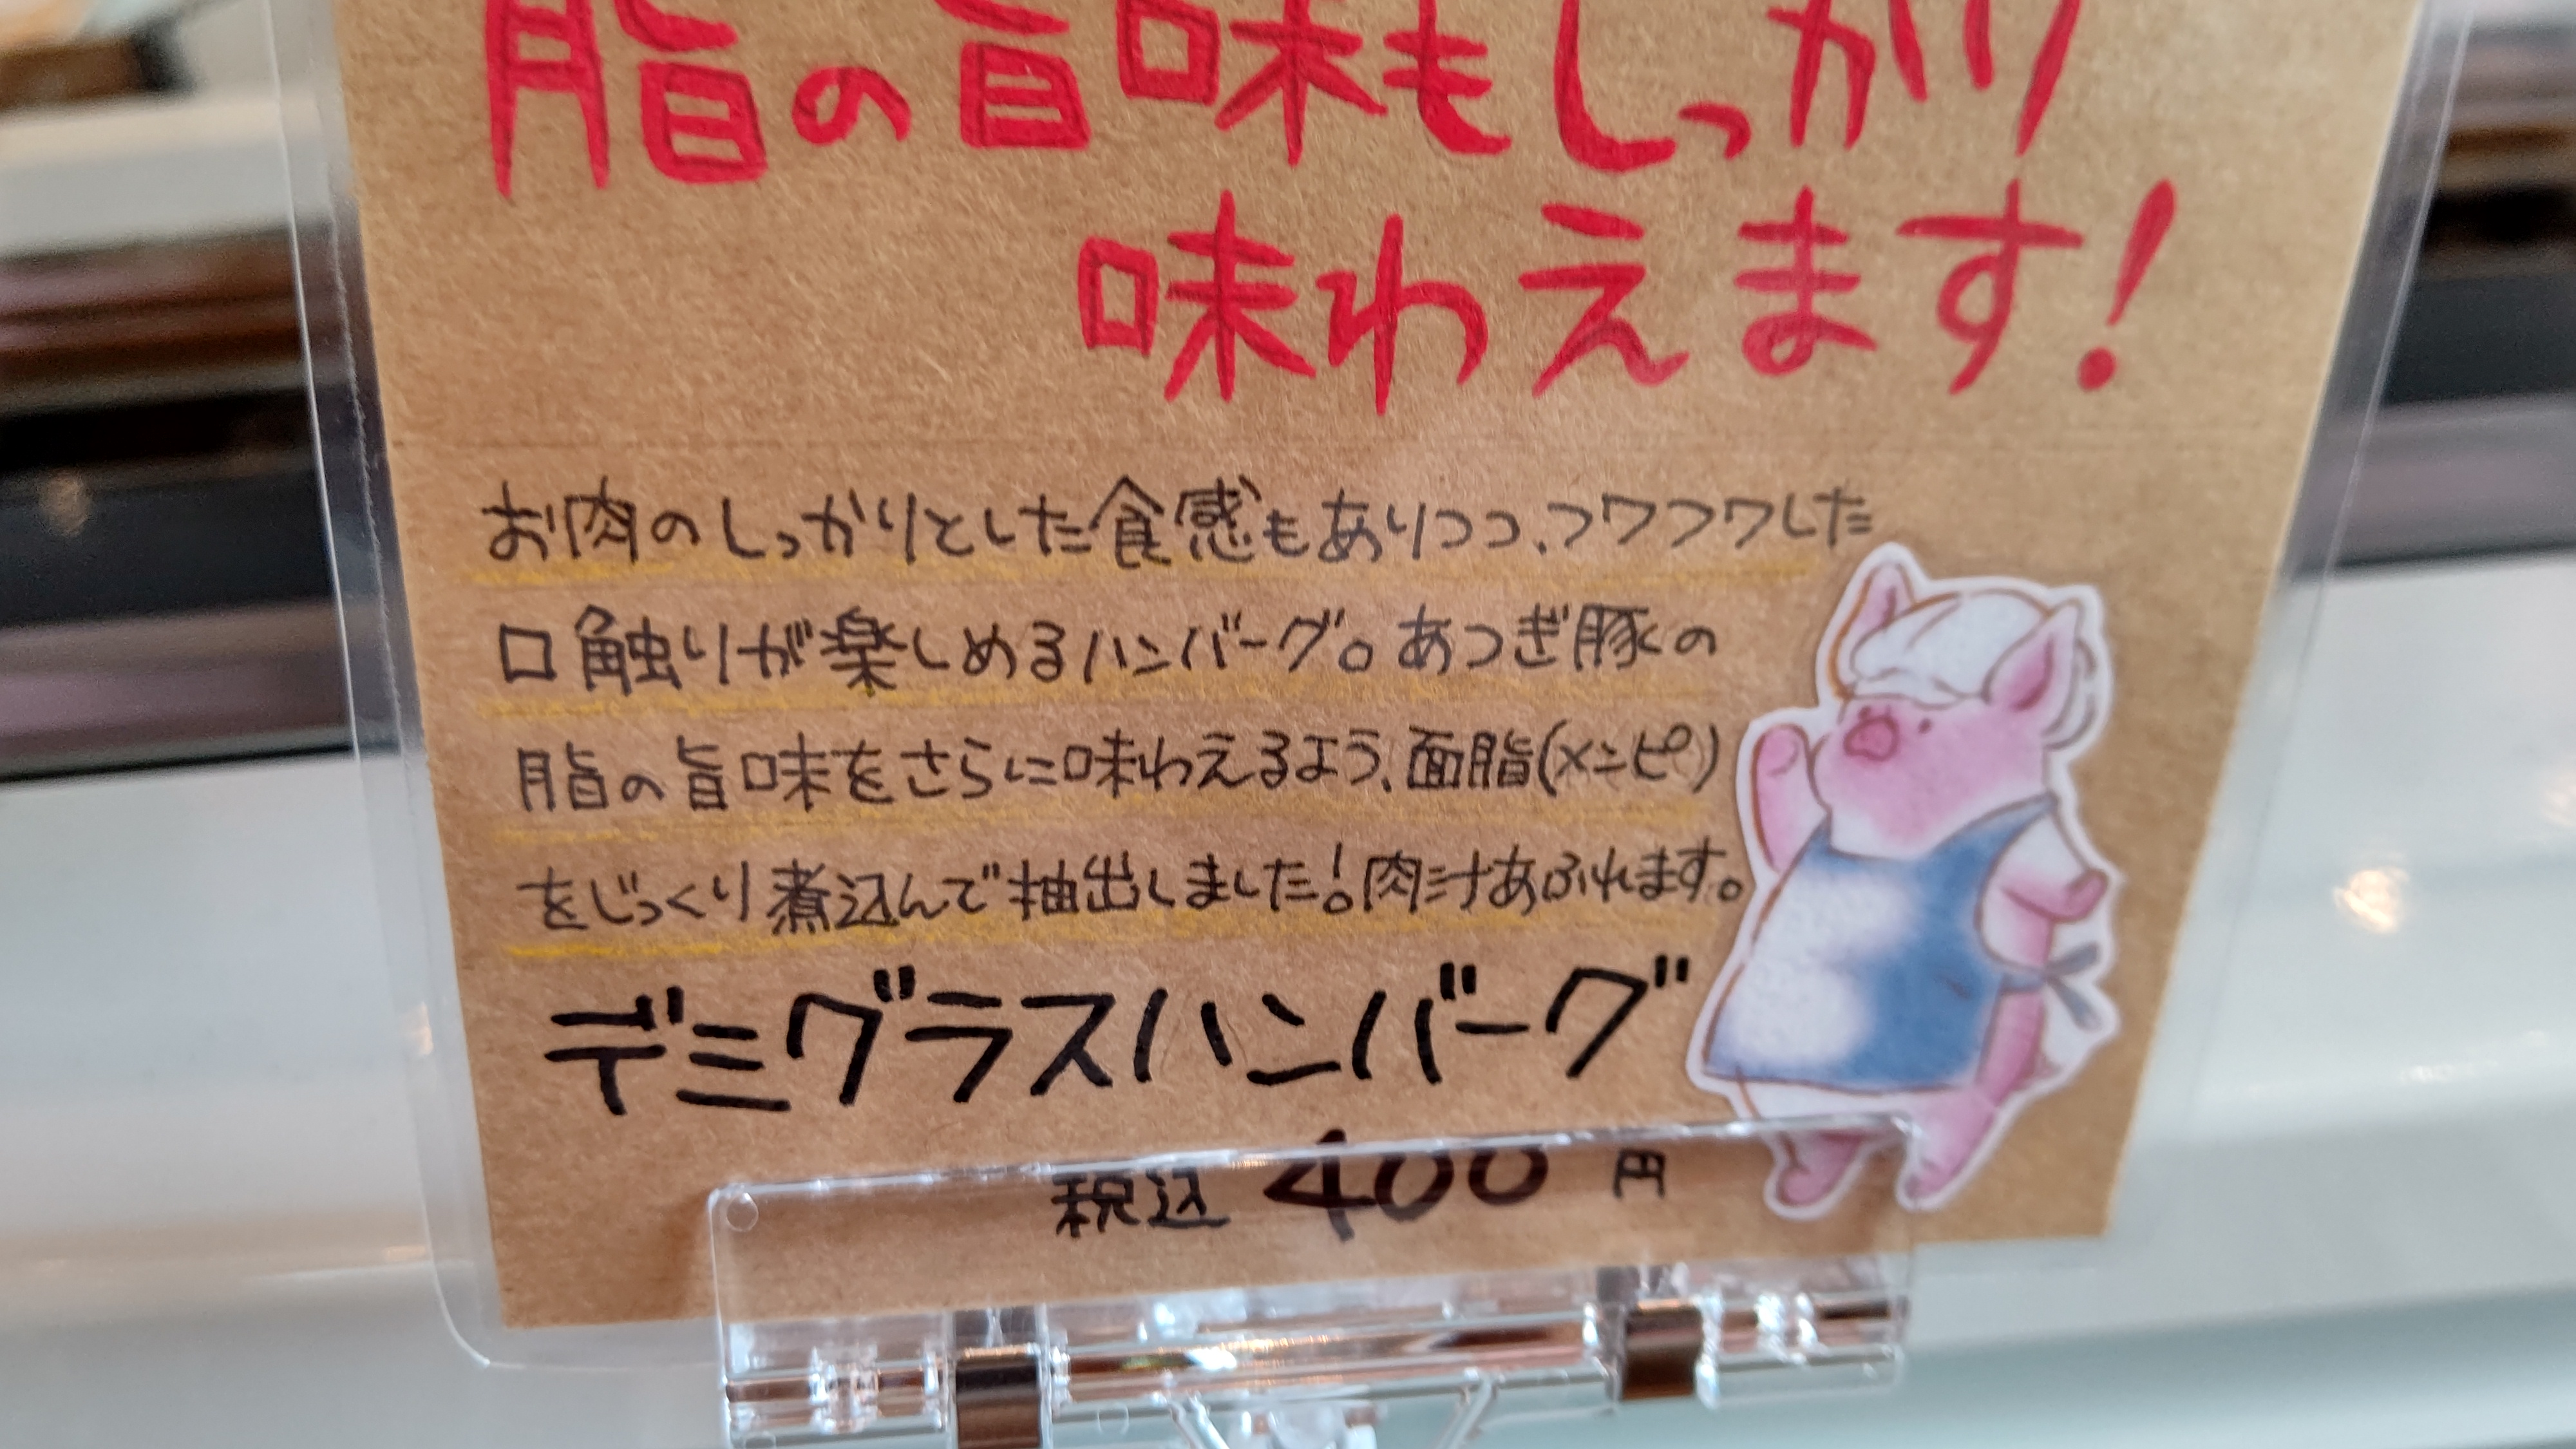 脂の旨味もしっかり
味わえます!
お肉のしっかりとした食感もありつつ、フワフワした
口触りが楽しめるハンバーグ。あつぎ豚の
脂の旨味をさらに味わえるよう、面脂(メンピ)
をじっくり煮込んで抽出しました!。肉汁あふれます。
デミグラスハンバーグ
税込 400 円